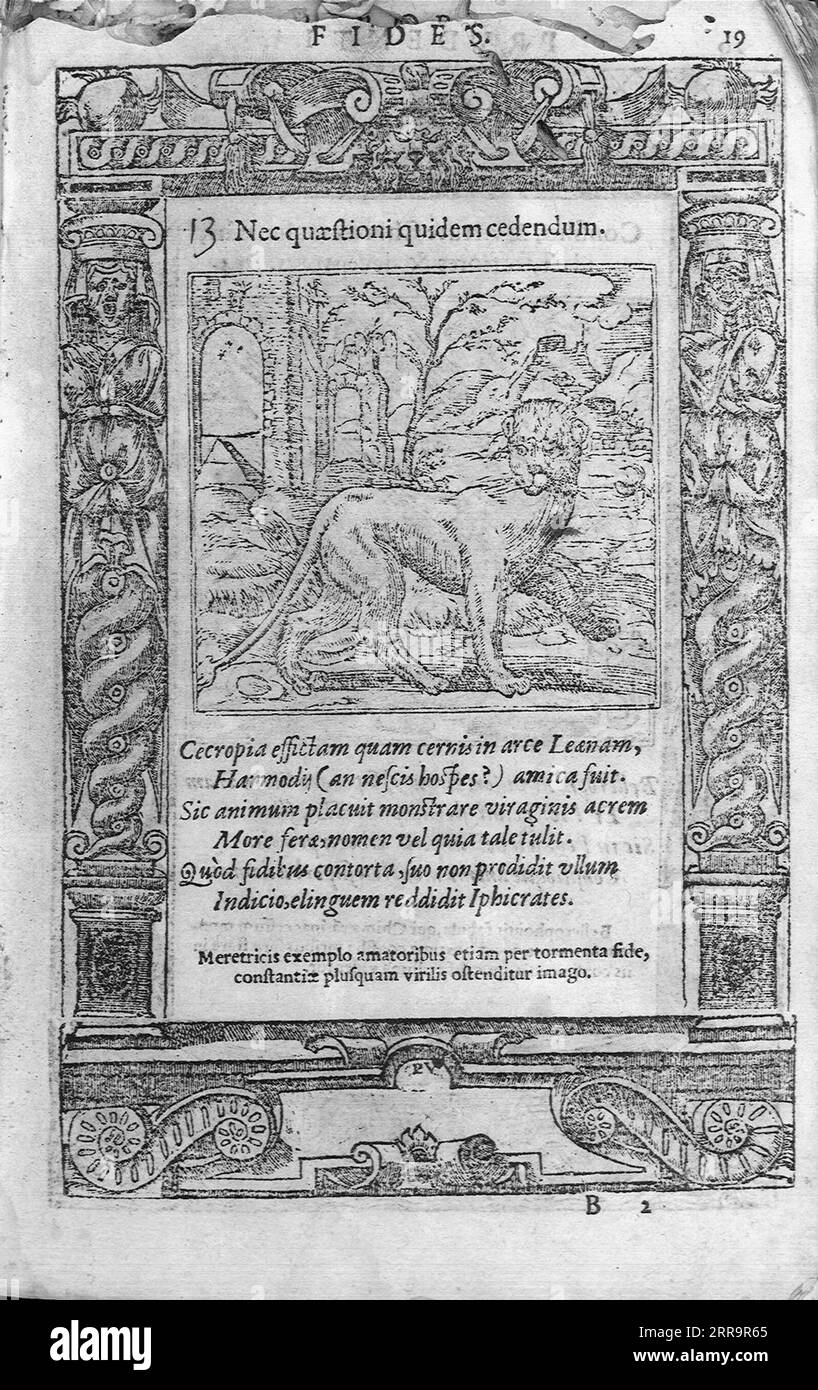 FIDES. 19
13 Nec quæſtioni quidem cedendum.
Cecropia effictam quam cernis in arce Leænam,
Harmodij (an neſcis hoſpes?) amica fuit.
Sic animum placuit monſtrare viraginis acrem
More feræ, nomen vel quia tale tulit.
Quòd fidibus contorta, ſuo non prodidit vllum
Indicio, elinguem reddidit Iphicrates.
Meretricis exemplo amatoribus etiam per tormenta fide,
conſtantiæ pluſquam virilis oſtenditur imago.
PV
B 2
alamy
Image ID: 2RR9R65
www.alamy.com